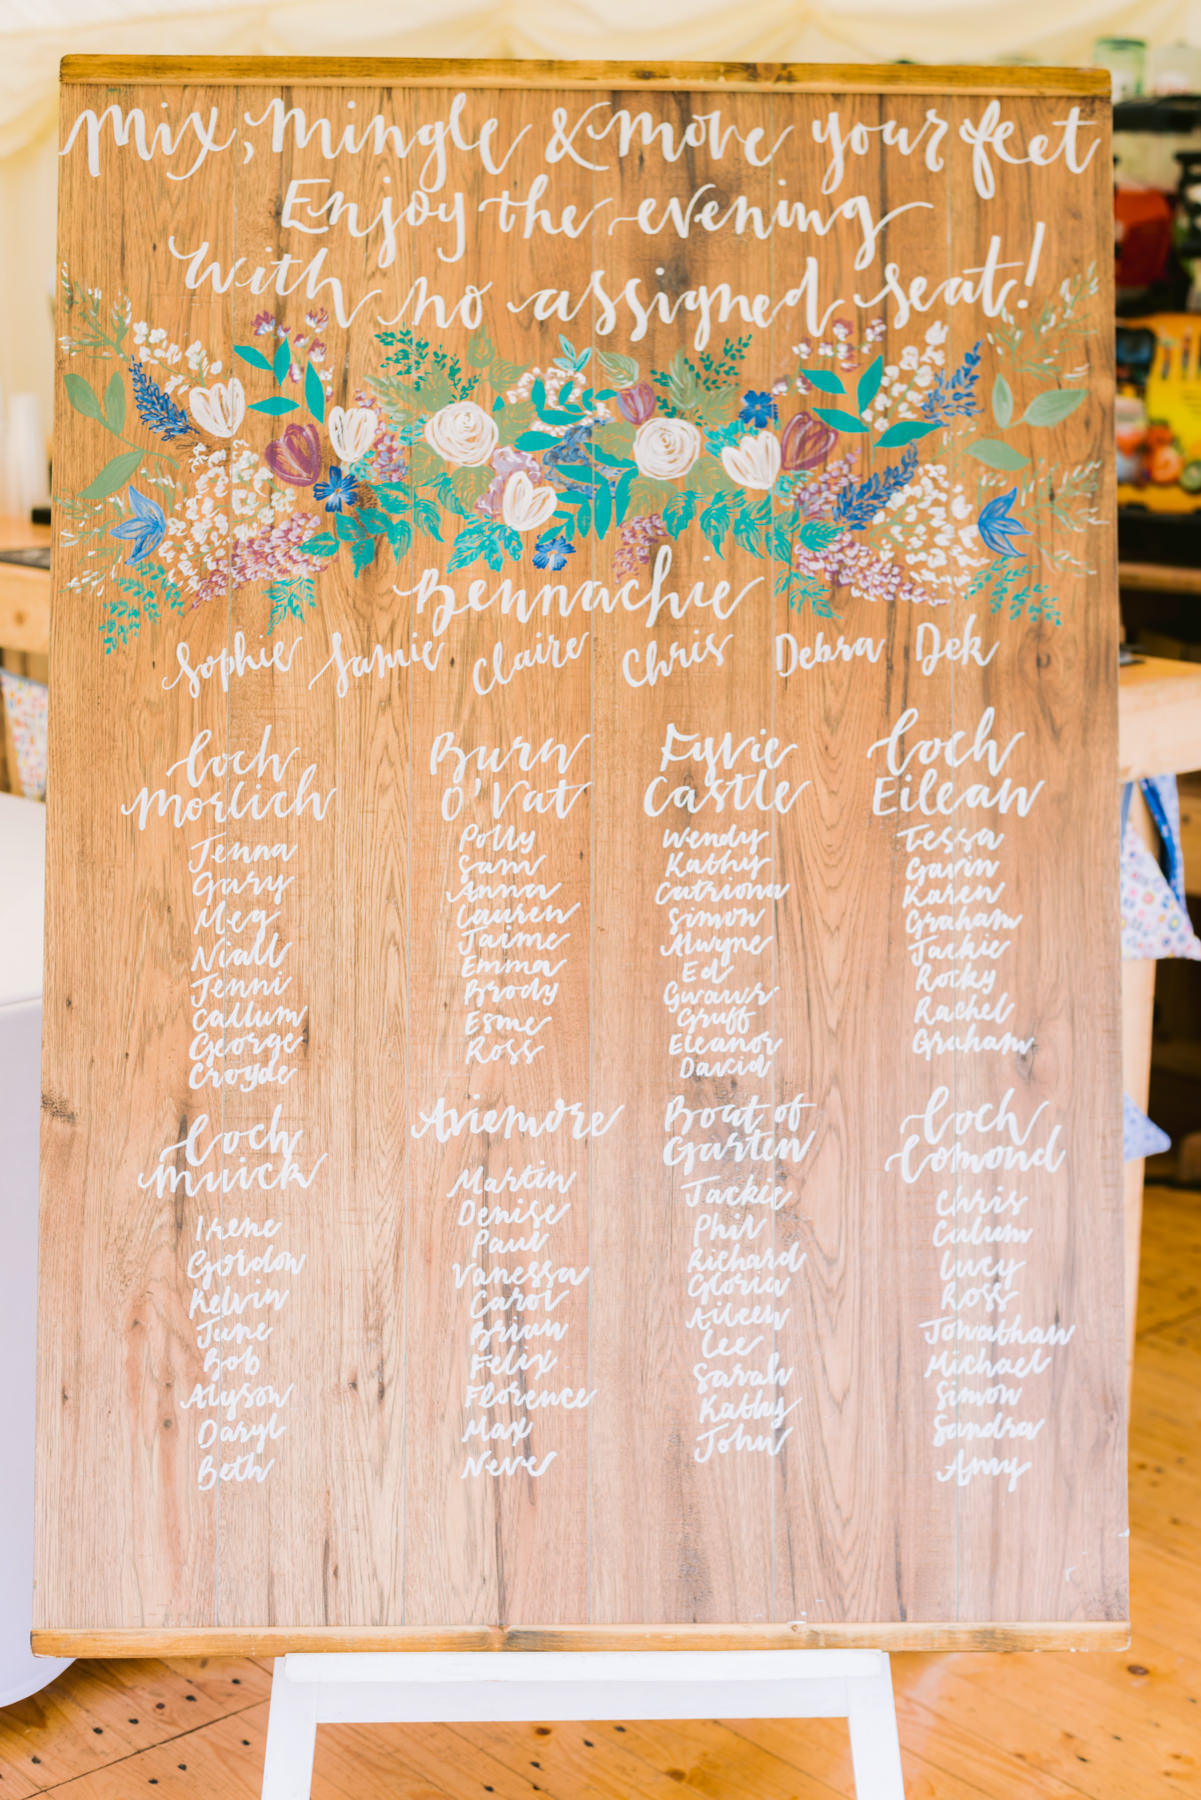 Mix, Mingle & move your feet
Enjoy the evening
with no assigned seat!
Bennachie
Sophie Jamie Claire Chris Debra Dek
Loch
Morlich
Jenna
Gary
Meg
Niall
Jenni
Callum
George
Croyde
Burn
O'Vat
Polly
Sam
Anna
Lauren
Jaime
Emma
Brody
Esme
Ross
Fyvie
Castle
Wendy
Kathy
Catriona
Simon
Alwyne
Ed
Gwawr
Gruff
Eleanor
David
Loch
Eilean
Tessa
Gavin
Karen
Graham
Jackie
Rocky
Rachel
Graham
Loch
Muick
Irene
Gordon
Kelvin
June
Bob
Alyson
Daryl
Beth
Aviemore
Martin
Denise
Paul
Vanessa
Carol
Brian
Felix
Florence
Max
Neve
Boat of
Garten
Jackie
Phil
Richard
Gloria
Aileen
Lee
Sarah
Kathy
John
Loch
Lomond
Chris
Culum
Lucy
Ross
Jonathan
Michael
Simon
Sandra
Amy